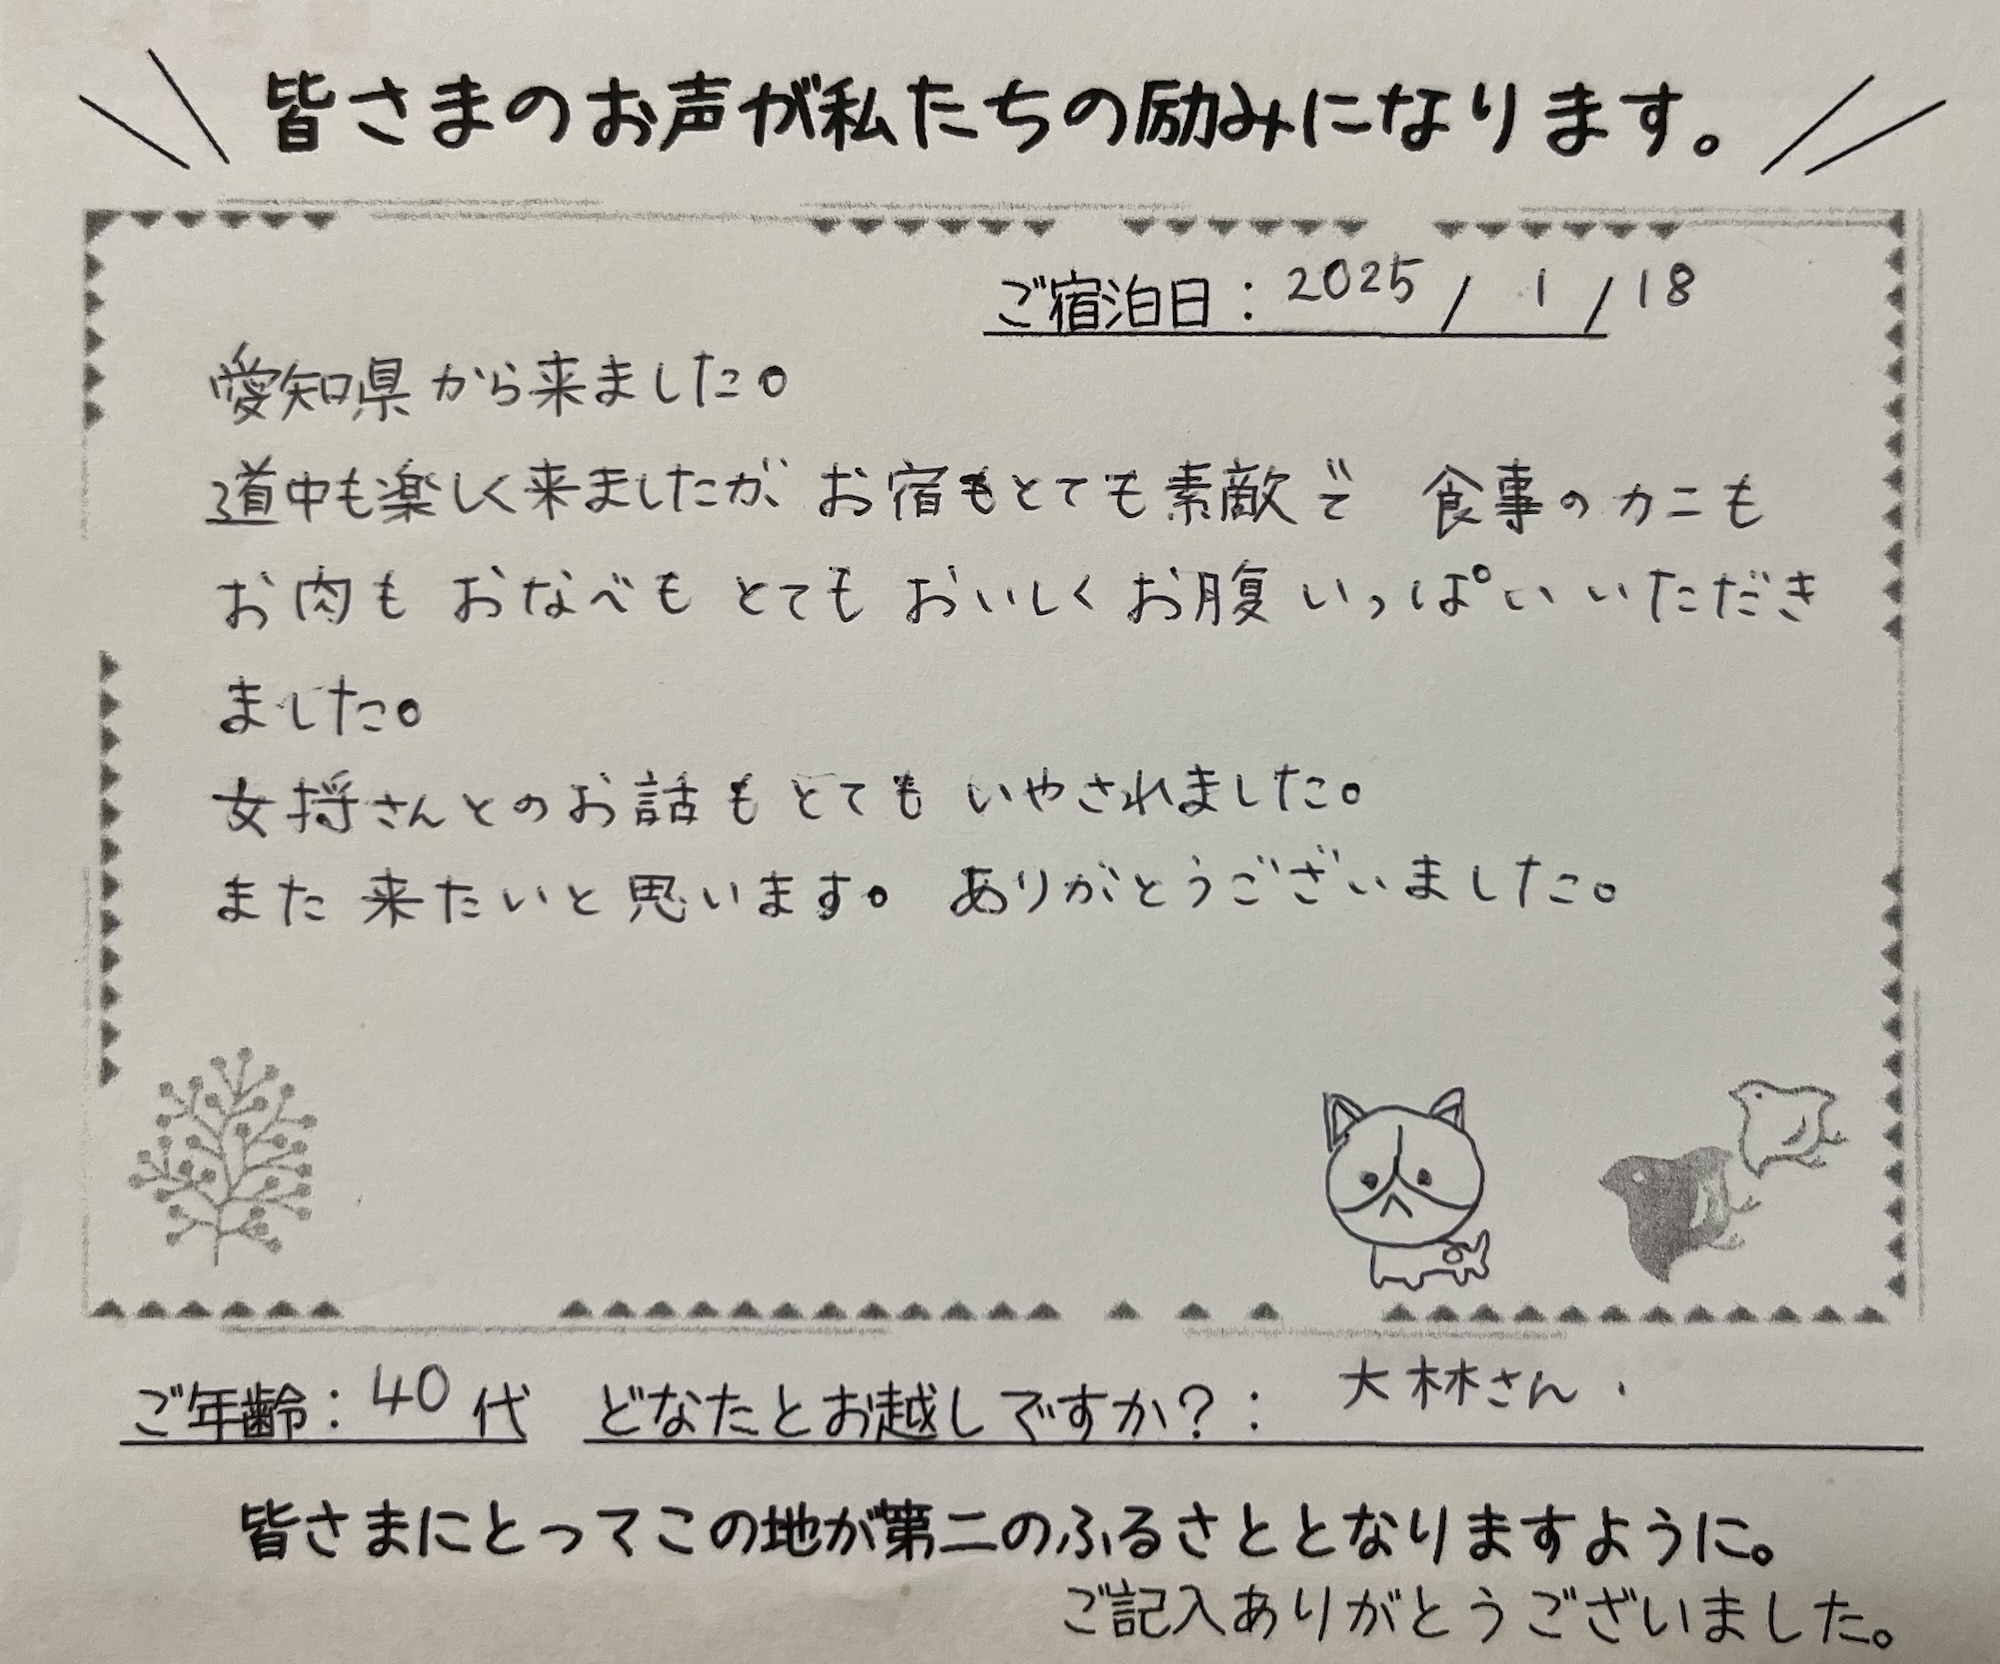 皆さまのお声が私たちの励みになります。
ご宿泊日：2025/1/18
愛知県から来ました。
道中も楽しく来ましたが、お宿もとても素敵で 食事のカニも
お肉も おなべも とても おいしく お腹 いっぱい いただき
ました。
女将さんとのお話も とても いやされました。
また 来たいと思います。 ありがとうございました。
ご年齢：40代 どなたとお越しですか？：大林さん、
皆さまにとってこの地が第二のふるさととなりますように。
ご記入ありがとうございました。